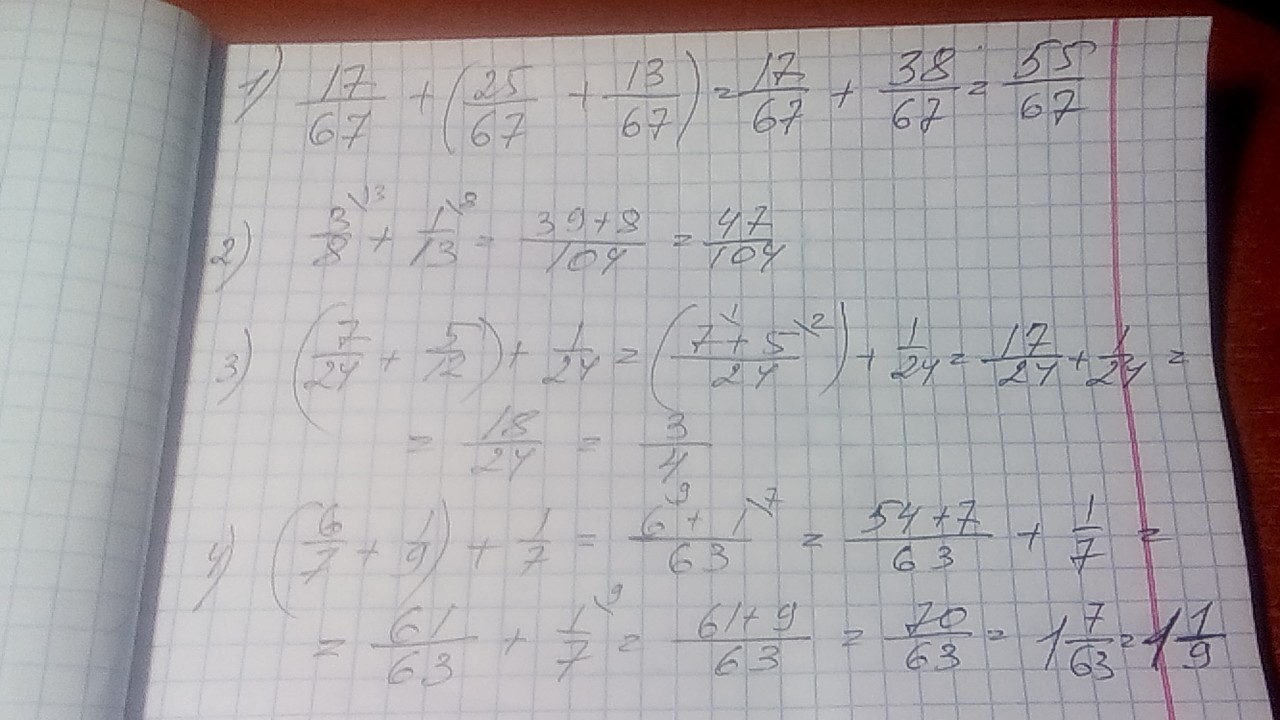 1) 17/67 + (25/67 + 13/67) = 17/67 + 38/67 = 55/67
2) 3/8 \13 + 1/13 \8 = 39+8/104 = 47/104
3) (7/24 + 5/12) + 1/24 = (7\1 + 5\2/24) + 1/24 = 17/24 + 1/24 =
= 18/24 = 3/4
4) (6/7 + 1/9) + 1/7 = 6\9 + 1\7/63 = 54+7/63 + 1/7 =
= 61/63 + 1/7 \9 = 61+9/63 = 70/63 = 1 7/63 = 1 1/9